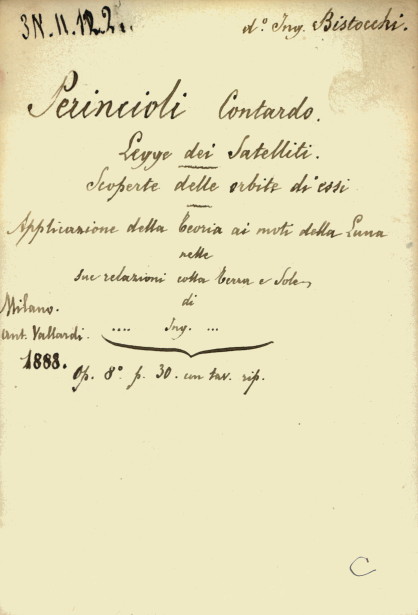 3N.11.12.2.
d.º Ing. Bistocchi.
Perincioli Contardo.
Legge dei Satelliti.
Scoperte delle orbite di essi
Applicazione della Teoria ai moti della Luna
nelle
sue relazioni colla Terra e Sole,
di
.... Ing. ...
Milano.
Ant. Vallardi.
1888.
Op. 8º p. 30. con tav. rip.
C